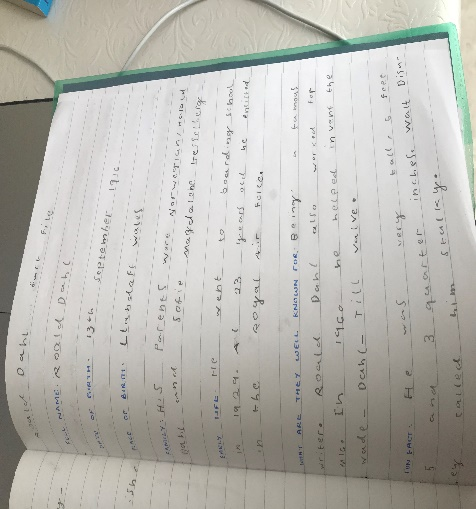 Roald Dahl fact File
FULL NAME: Roald Dahl
DATE OF BIRTH: 13th september 1916
PLACE OF BIRTH: Llandaff wales
FAMILY: His Parents were Norwegian, Harald
Dahl and Sofie magdalene Hesselberg
EARLY LIFE He went to boarding school
in 1929. At 23 years old he enlisted
in the royal air force.
WHAT ARE THEY WELL KNOWN FOR: Being a famous
writer Roald Dahl also worked for
MI6. In 1960 he helped invent the
wade-Dahl-Till valve.
FUN FACT: He was very tall: 6 feet
5 and 3 quarter inches. Walt Disn-
ey called him stalky.